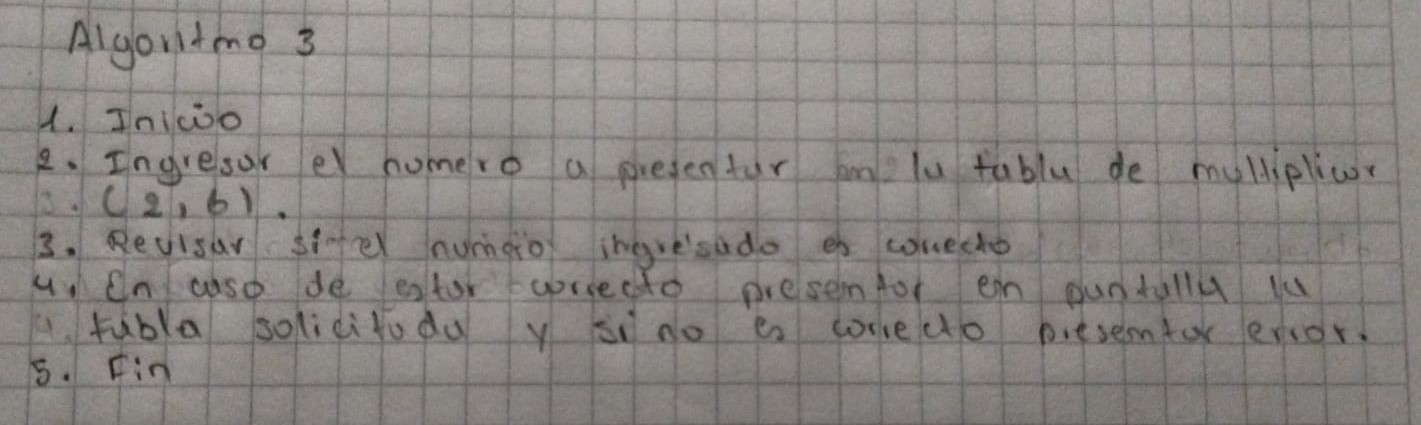 Algoritmo 3
1. Inicio
2. Ingresar el numero a presentar en la tabla de multiplicar
(2,6).
3. Revisar si el numero ingresado es correcto
4. En caso de estar correcto presentar en pantalla la
tabla solicitada y si no es correcto presentar error.
5. Fin